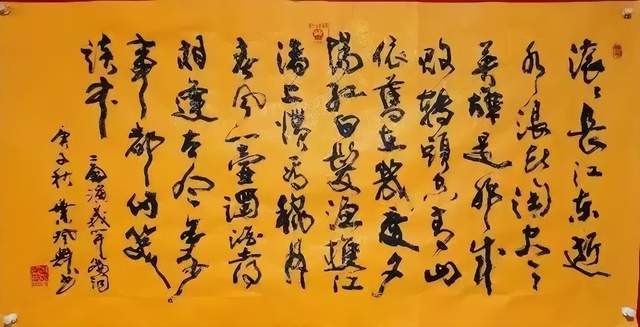 滚滚長江东逝
水浪花淘尽
英雄是非成
败轉頭空青山
依舊在幾度夕
陽红白髮渔樵江
渚上惯看秋月
春风一壶濁酒喜
相逢古今多少
事都付笑
谈中
三國演義開篇词
庚子秋 書